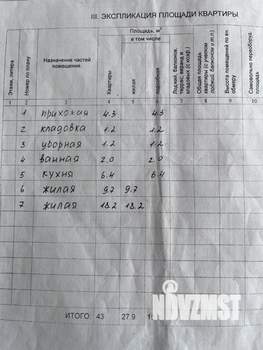 III. ЭКСПЛИКАЦИЯ ПЛОЩАДИ КВАРТИРЫ
Этажи, литера
Номер по плану
Назначение частей помещения
Площадь, м²
в том числе
Квартиры
жилая
подсобная
Высота помещений по вн. обмеру
1 2 3 4 5 6 7 8 9 10
1 прихожая 4.3 4.3
2 кладовка 1.2 1.2
3 уборная 1.2 1.2
4 ванная 2.0 2.0
5 кухня 6.4 6.4
6 жилая 9.7 9.7
7 жилая 18.2 18.2
ИТОГО 43 27.9
NDVZMST